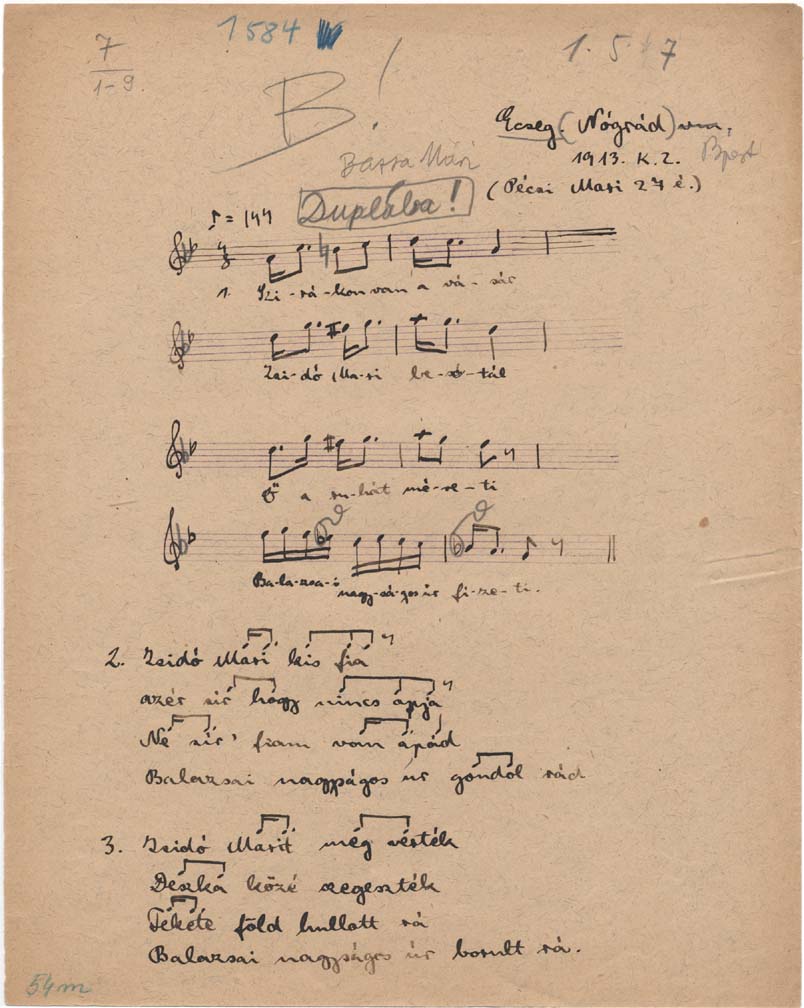 7
1-9.
1584
1. 5. 7
B!
Ecseg. (Nógrád) vm.
1913. K. Z.
Bpest
(Pécsi Mari 27 é.)
Duplába!
♪ = 144
4
8
1. Szi-rá-kon van a vá-sár
Zsi-dó Ma-ri be-tál
Ő a ru-hát mé-re-ti
Ba-la-zsa-i nagy-sá-gos úr fi-ze-ti.
2. Zsidó Mári kis fia
azér sir hogy nincs apja
Ne sir' fiam van apád
Balazsai nagyságos úr gondol rád
3. Zsidó Marit még vérték
Deszka közé szegeszték
Fekete föld hullott rá
Balazsai nagyságos úr borult rá.
54m